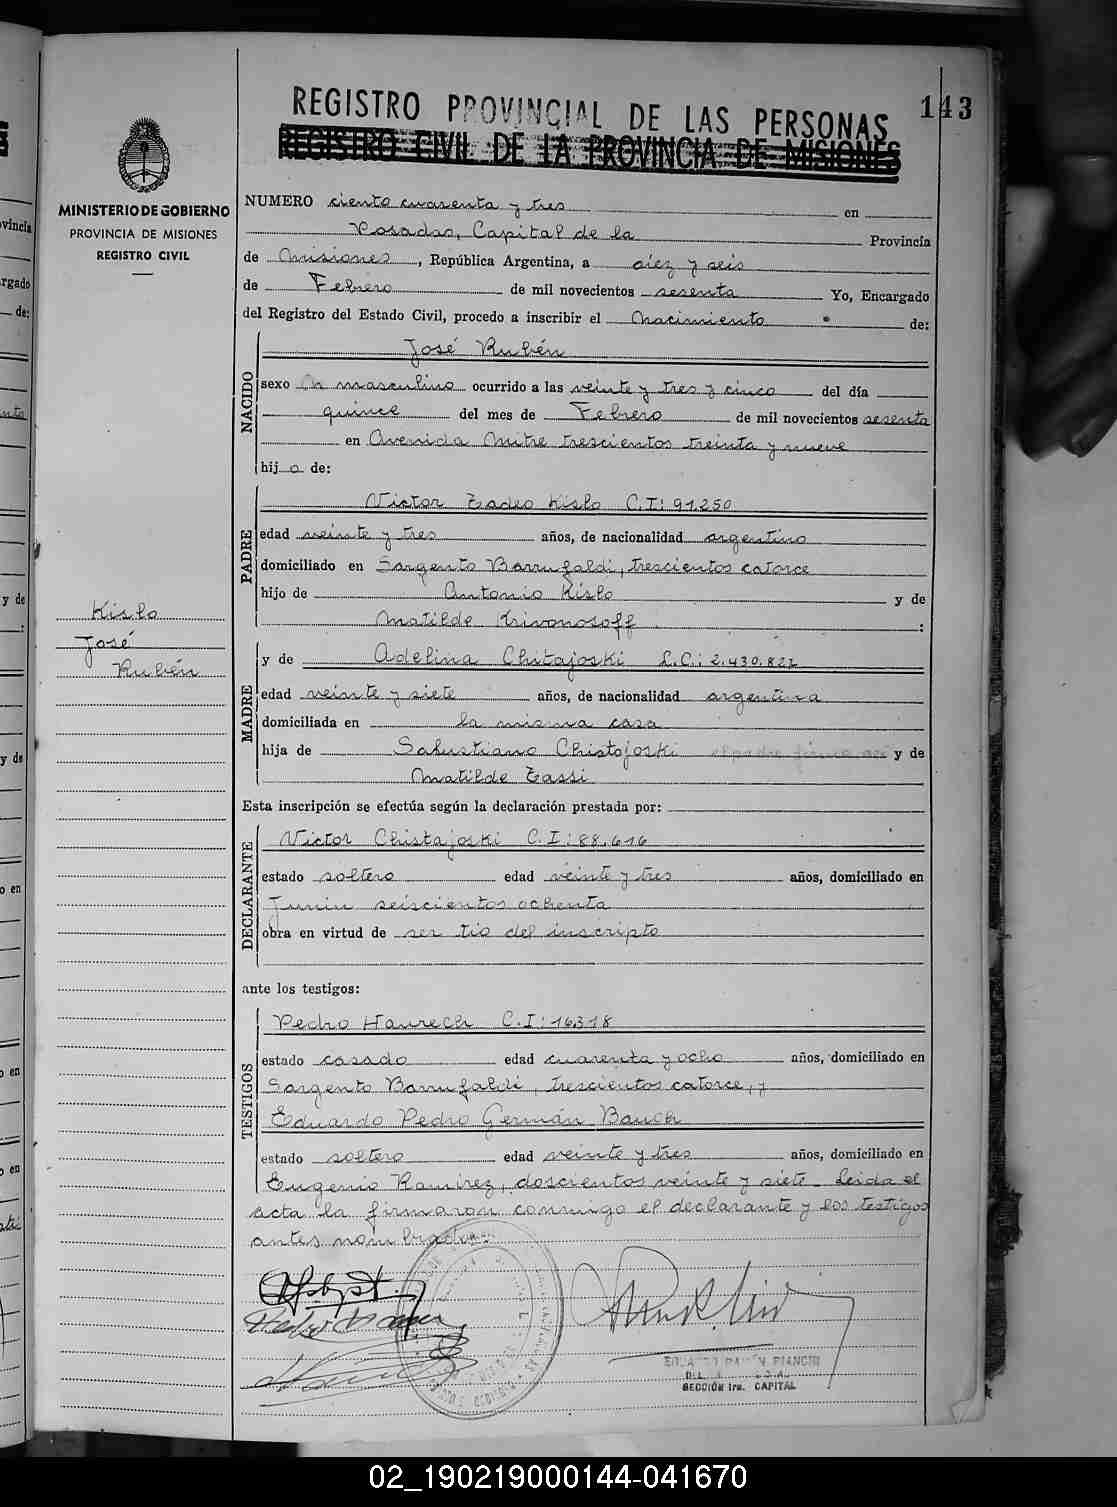 REGISTRO PROVINCIAL DE LAS PERSONAS
143
REGISTRO CIVIL DE LA PROVINCIA DE MISIONES
MINISTERIO DE GOBIERNO
PROVINCIA DE MISIONES
REGISTRO CIVIL
NUMERO ciento cuarenta y tres en
Posadas, Capital de la Provincia
de Misiones, República Argentina, a diez y seis
de Febrero de mil novecientos sesenta Yo, Encargado
del Registro del Estado Civil, procedo a inscribir el Nacimiento de:
NACIDO
José Rubén
sexo masculino ocurrido a las veinte y tres y cinco del día
quince del mes de Febrero de mil novecientos sesenta
en Avenida Mitre trescientos treinta y nueve
hijo de:
PADRE
Victor Tadeo Kislo C.I: 91.250
edad veinte y tres años, de nacionalidad argentino
domiciliado en Sargento Barrufaldi, trescientos catorce
hijo de Antonio Kislo y de
Matilde Krivonosoff :
Kislo
José
Rubén
MADRE
y de Adelina Chitajoski L.C.: 2.430.822
edad veinte y siete años, de nacionalidad argentina
domiciliada en la misma casa
hija de Salustiano Chistojoski y de
Matilde Tassi
Esta inscripción se efectúa según la declaración prestada por:
DECLARANTE
Victor Chistajoski C.I: 88.616
estado soltero edad veinte y tres años, domiciliado en
Junin seiscientos ochenta
obra en virtud de ser tio del inscripto
ante los testigos:
TESTIGOS
Pedro Haurech C.I: 16.318
estado casado edad cuarenta y ocho años, domiciliado en
Sargento Barrufaldi, trescientos catorce, y
Eduardo Pedro Germán Bauch
estado soltero edad veinte y tres años, domiciliado en
Eugenio Ramirez, doscientos veinte y siete. Leida el
acta la firmaron conmigo el declarante y los testigos
antes nombrados
EDUARDO RAMÓN BIANCHI
SECCIÓN 1ra. CAPITAL
02_190219000144-041670